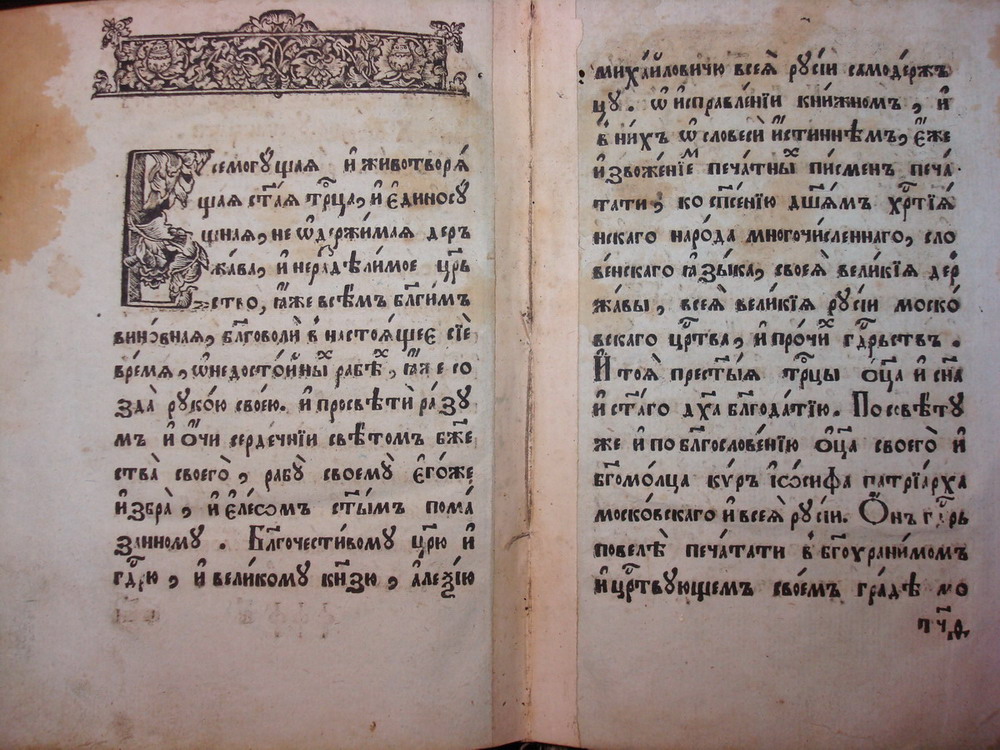 Всемогꙋ́щая и҆ животворѧ́
щая ст҃а́я трⷪ҇ца, и҆ є҆диносꙋ́
щная, не ѡ҆держи́мая дер
жа́ва, и҆ нераздѣли́мое црⷭ҇
ство, ꙗ҆́же всѣ́мъ бл҃ги́мъ
вино́вная, бл҃говолѝ в настоѧ́щеє сїе
вре́мя, ѡ҆ недосто́йныⷯ рабѣⷯ, ꙗ҆́же со
зда̀ рꙋко́ю своє́ю. и҆ просвѣтѝ ра́зꙋ
мъ и҆ ѻ҆́чи серде́чнїи свѣ́томъ бжⷭ҇е
ства̀ своегѡ̀, рабꙋ̀ своемꙋ̀ є҆го́же
и҆збра̀, и҆ є҆ле́ѡмъ ст҃ы́мъ пома́
занномꙋ. Бл҃гочести́вомꙋ црⷭ҇ю и҆
гдⷭ҇рю, и҆ вели́комꙋ кн҃зю, а҆леѯі́ю
миха́йловичю всеѧ̀ рꙋсі́и самоде́ржъ
цꙋ. ѡ҆ и҆справле́нїи кни́жномъ, и҆
в ни́хъ ѡ҆ словесѝ и҆́стиннѣмъ, є҆́же
и҆зво́женїеⷨ печа́тныⷯ пи́сменъ печа́
тати, ко сп҃се́нїю дш҃а́мъ хрⷭ҇тїѧ́
нскаго наро́да многочи́сленнаго, сло
ве́нскаго ꙗ҆зы́ка, своеѧ̀ вели́кїѧ дер
жа́вы, всеѧ̀ вели́кїѧ рꙋсі́и моско́
вскаго црⷭ҇тва, и҆ про́чиⷯ гдⷭ҇рьствъ.
И҆ тоѧ̀ прест҃ы́ѧ трⷪ҇цы ѻ҆ц҃а̀ и҆ сн҃а
и҆ ст҃а́го дх҃а бл҃года́тїю. По совѣ́тꙋ
же и҆ по бл҃гослове́нїю ѻ҆ц҃а̀ своегѡ̀ и҆
бг҃омо́лца кѵ́ръ і҆ѡ́сифа патрїа́рха
моско́вскаго и҆ всеѧ̀ рꙋсі́и. Ѻ҆́нъ гдⷭ҇рь
повелѣ̀ печа́тати в бг҃охрани́момъ
и҆ црⷭ҇твꙋющемъ свое́мъ гра́дѣ мо